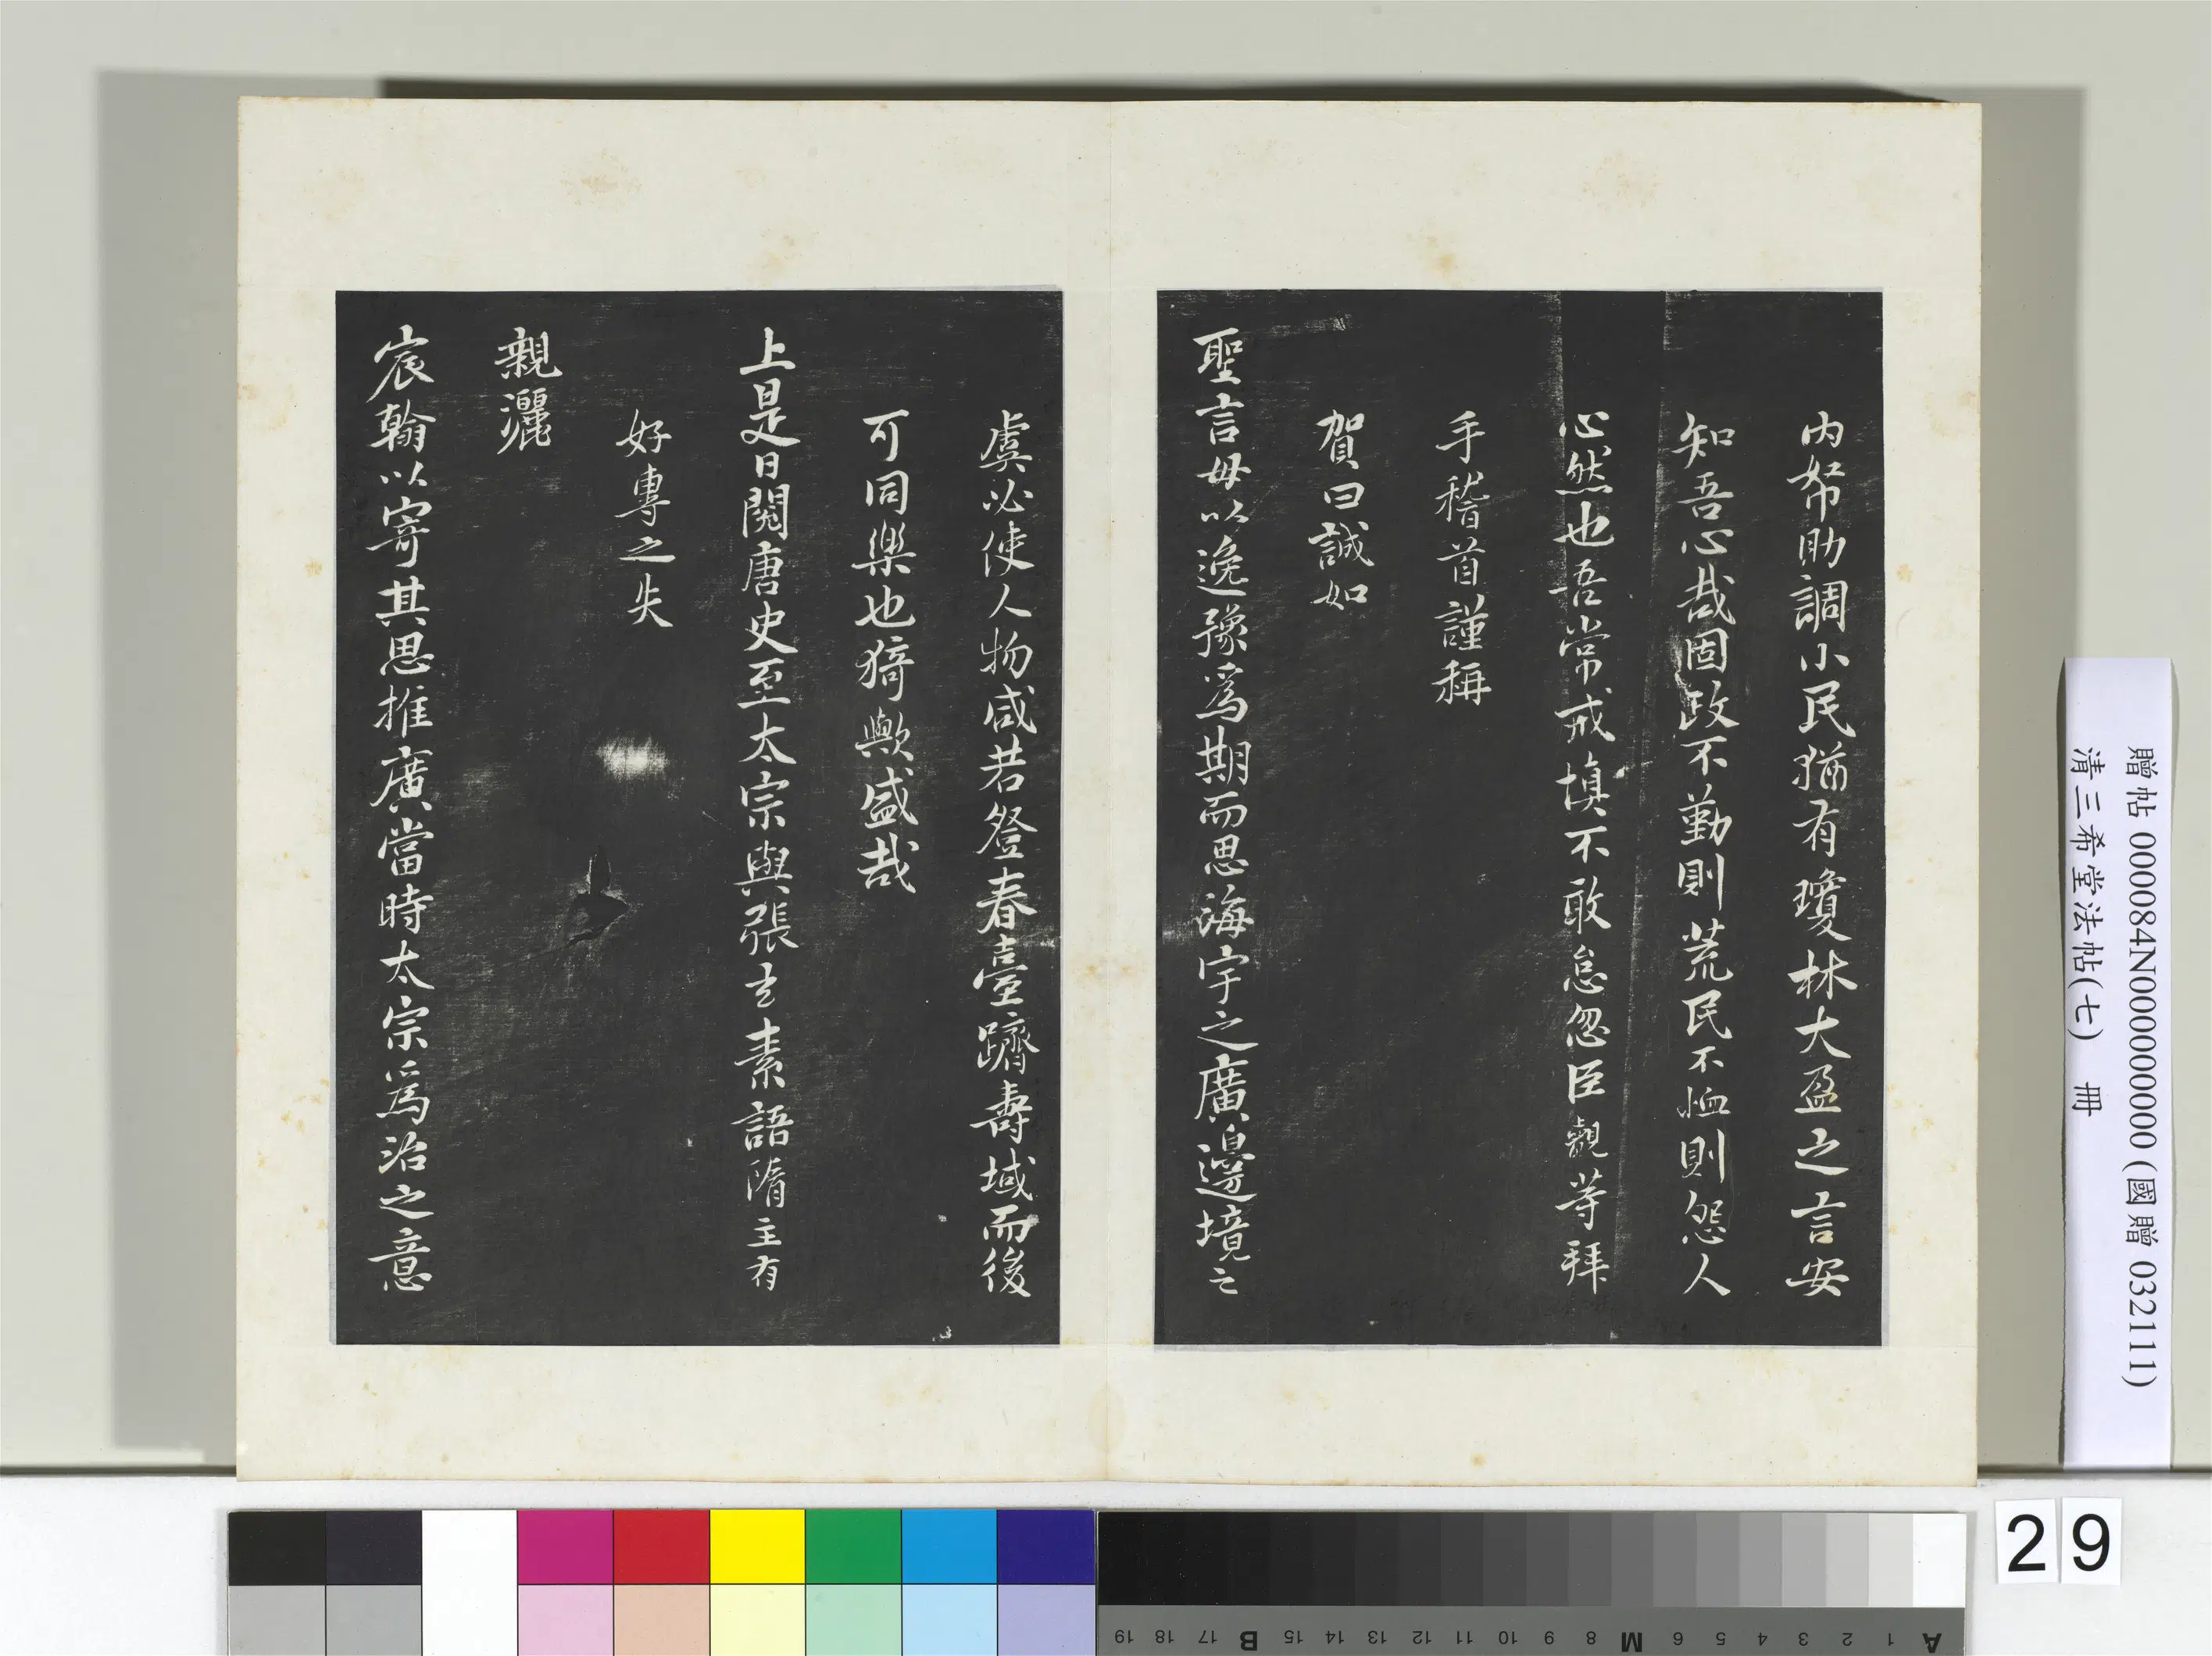 內帑助調小民猶有瓊林大盈之言安
知吾心哉固政不勤則荒民不恤則怨人
心然也吾常戒慎不敢怠忽臣觀等拜
手稽首謹稱
賀曰誠如
聖言毋以逸豫爲期而思海宇之廣邊境之
虞必使人物咸若登春臺躋壽域而後
可同樂也猗歟盛哉
上是日閱唐史至太宗與張玄素語隋主有
好專之失
親灑
宸翰以寄其思推廣當時太宗爲治之意
贈帖 000084N000000000 (國贈 032111)
清三希堂法帖(七) 冊
29
A 1 2 3 4 5 6 M 8 9 10 11 12 13 14 15 B 17 18 19